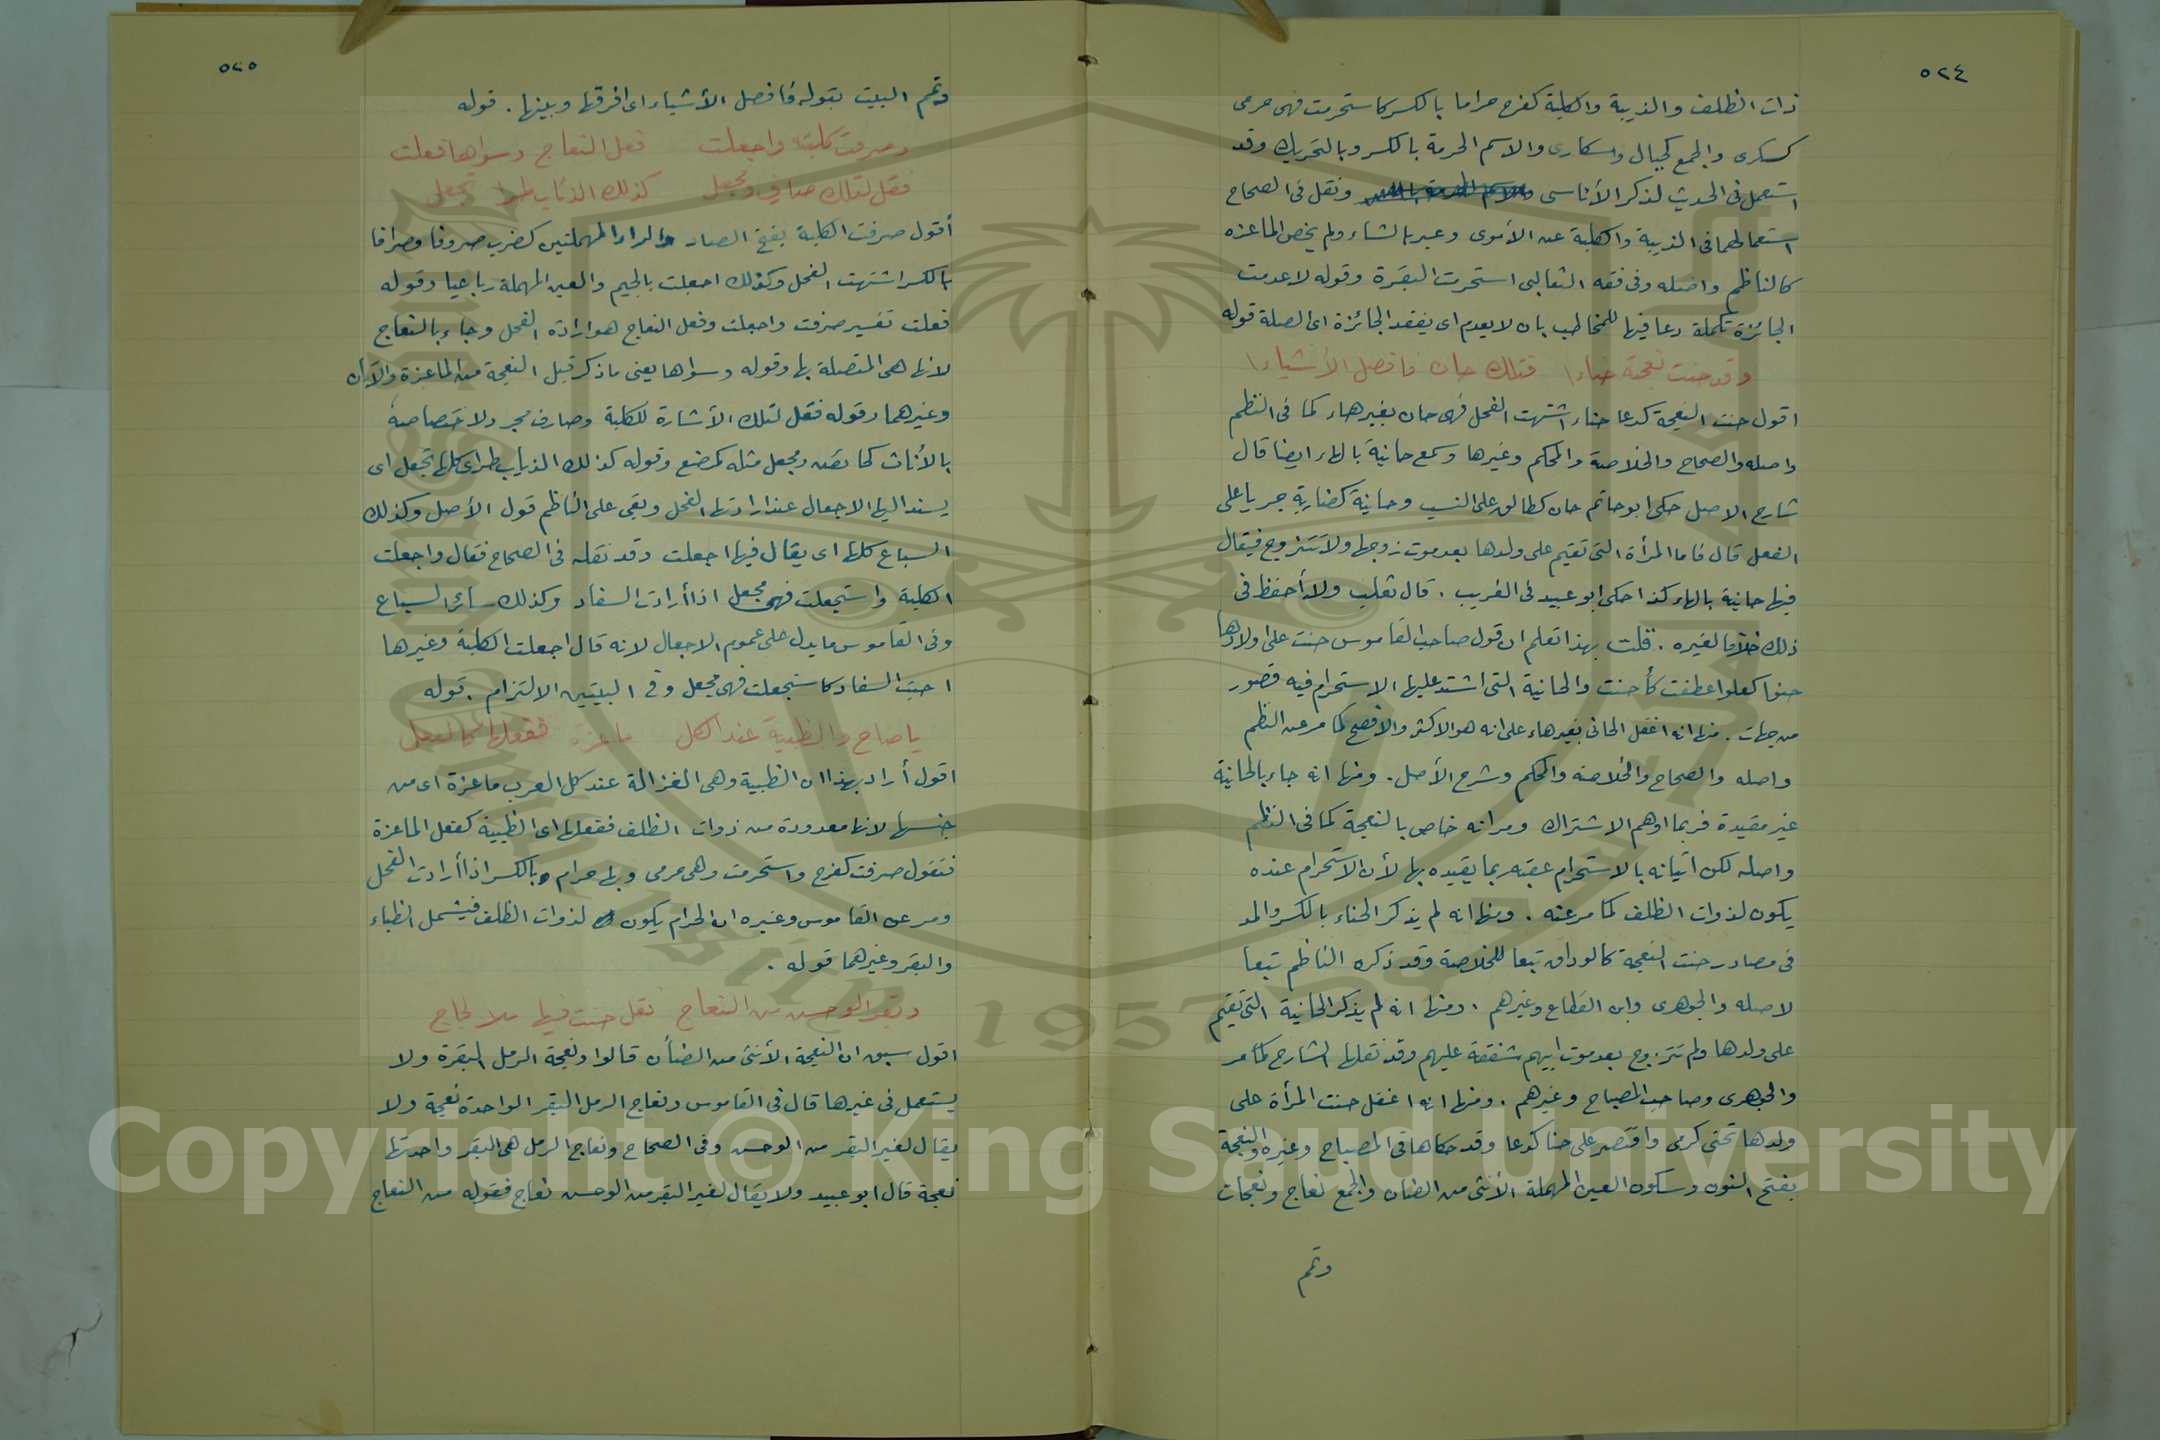 ٥٢٤
ذات الظلف والذيبة والكلبة كفرح حراما بالكسر كاستحرمت فهى حرمى
كسكرى والجمع كحبال وسكارى والاسم الحرمة بالكسر وبالتحريك وقد
استعمل فى الحديث لذكر الأناسى ونقل فى الصحاح
استعمالهما فى الذيبة والكلبة عن الأموى وعبر بالشاء ولم يخص الماعزه
كالناظم واصله وفى فقه الثعالبى استحرمت البقرة وقوله لا عدمت
الجائزة تكملة دعا فيها للمخاطب بان لا يعدم اى يفقد الجائزة اى الصلة قوله
وقد حنت نعجة حناءا فتلك حان فافصل الأشياءا
اقول حنت النعجة كدعا حناء اشتهت الفحل فهى حان بغير هاء كما فى النظم
واصله والصحاح والخلاصة والمحكم وغيرها وسمع حانية بالهاء ايضا قال
شارح الاصل حكى ابو حاتم حان كطالق على النسب وحانية كضاربة جريا على
الفعل قال فاما المرأة التى تقيم على ولدها بعد موت زوجها ولا تتزوج فيقال
فيها حانية بالهاء كذا حكى ابو عبيد فى الغريب . قال ثعلب ولا أحفظ فى
ذلك خلافا لغيره . قلت بهذا تعلم ان قول صاحب القاموس حنت على اولادها
حنوا كعلوا عطفت كأحنت والحانية التى اشتد عليها الاستحرام فيه قصور
من جهات . منها انه اغفل الحانى بغير هاء على انه هو الاكثر والافصح كما مر عن النظم
واصله والصحاح والخلاصة والمحكم وشرح الأصل . ومنها انه جاء بالحانية
غير مقيدة فربما اوهم الاشتراك ومر انه خاص بالنعجة كما فى النظم
واصله لكن اتيانه بالاستحرام عقبه ربما يقيده بها لأن الاستحرام عنده
يكون لذوات الظلف كما مر عنه . ومنها انه لم يذكر الحناء بالكسر والمد
فى مصادر حنت النعجة كالوداق تبعا للخلاصة وقد ذكره الناظم تبعا
لاصله والجوهرى وابن القطاع وغيرهم . ومنها انه لم يذكر الحانية التى تقيم
على ولدها ولم تتزوج بعد موت ابيهم شفقة عليهم وقد نقلها الشارح كما مر
والجوهرى وصاحب المصباح وغيرهم . ومنها انه اغفل حنت المرأة على
ولدها تحنى كرمى واقتصر على حنا كدعا وقد حكاها فى المصباح وغيره والنعجة
بفتح النون وسكون العين المهملة الأنثى من الضان والجمع نعاج ونعجات
وتمم
٥٢٥
وتمم البيت بقوله فافصل الأشياء اى افرقها وبينها . قوله
وصرفت كلبة واجعلت فعل النعاج وسواها فعلت
فقل لتلك صارف ومجعل كذلك الذئاب طرا تجعل
أقول صرفت الكلبة بفتح الصاد والراء المهملتين كضرب صروفا وصرافا
بالكسر اشتهت الفحل وكذلك اجعلت بالجيم والعين المهملة رباعيا وقوله
فعلت تفسير صرفت واجعلت وفعل النعاج هو ارادة الفحل وجاء بالنعاج
لانها هى المتصلة بها وقوله وسواها يعنى ما ذكر قبل النعجة من الماعزة والأتان
وغيرهما وقوله فقل لتلك الأشارة للكلبة وصارف مجرد لاختصاصه
بالأناث كحائض ومجعل مثله كمرضع وقوله كذلك الذياب طرا اى كلها تجعل اى
يسند اليها الاجعال عند ارادتها الفحل وبقى على الناظم قول الأصل وكذلك
السباع كلها اى يقال فيها اجعلت وقد نقله فى الصحاح فقال واجعلت
الكلبة واستجعلت فهى مجعل اذا أرادت السفاد وكذلك سائر السباع
وفى القاموس ما يدل على عموم الاجعال لانه قال اجعلت الكلبة وغيرها
احبت السفاد كاستجعلت فهى مجعل وفى البيتين الالتزام . قوله
يا صاح والظبية عند الكل ماعزة ففعلها كالفعل
اقول أراد بهذا ان الظبية وهى الغزالة عند كل العرب ماعزة اى من
جنسها لانها معدودة من ذوات الظلف ففعلها اى الظبية كفعل الماعزة
فتقول حرمت كفرح واستحرمت وهى حرمى وبها حرام بالكسر اذا أرادت الفحل
ومر عن القاموس وغيره ان الحرام يكون لذوات الظلف فيشمل الظباء
والبقر وغيرهما قوله .
وبقر الوحش من النعاج فقل حنت فيها بلا لجاج
اقول سبق ان النعجة الأنثى من الضأن قالوا ونعجة الرمل البقرة ولا
يستعمل فى غيرها قال فى القاموس ونعاج الرمل البقر الواحدة نعجة ولا
يقال لغير البقر من الوحش وفى الصحاح ونعاج الرمل هى البقر واحدتها
نعجة قال ابو عبيد ولا يقال لغير البقر من الوحش نعاج فقوله من النعاج
Copyright © King Saud University
1957